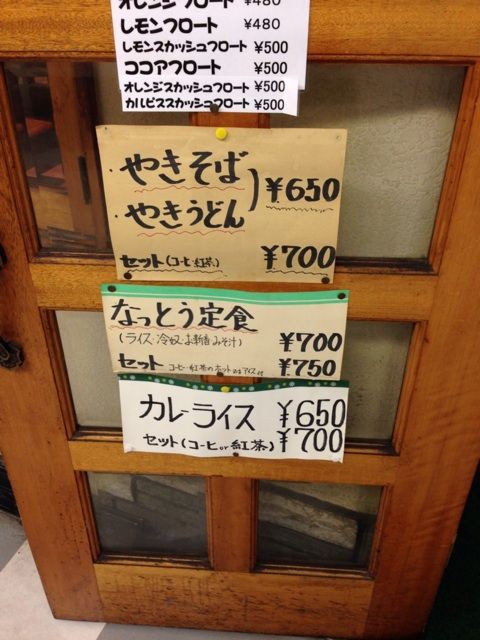 オレンジフロート ¥480
レモンフロート ¥480
レモンスカッシュフロート ¥500
ココアフロート ¥500
オレンジスカッシュフロート ¥500
カルピススカッシュフロート ¥500
・やきそば
・やきうどん ) ¥650
セット(コーヒ・紅茶) ¥700
なっとう定食
(ライス・冷奴・お新香・みそ汁) ¥700
セット コーヒ・紅茶のホット又はアイス付 ¥750
カレーライス ¥650
セット(コーヒor紅茶) ¥700